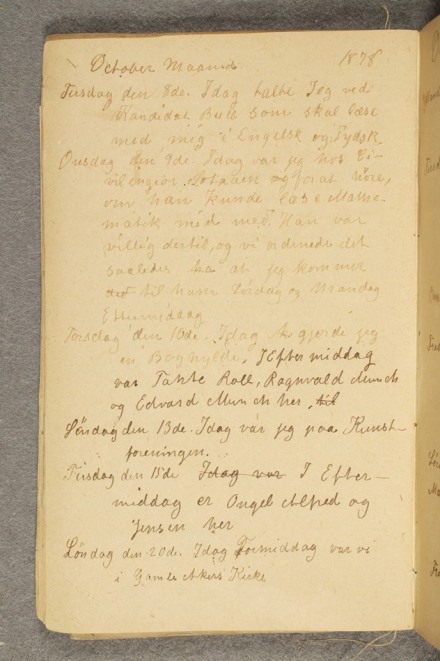 October Maaned 1878
Tirsdag den 8de. Idag talte Jeg ved
Kandidat Bull som skal læse
med mig i Engelsk og Tydsk.
Onsdag den 9de. Idag var jeg hos Ci-
vilingiør og for at høre,
om han kunde læse Mathe-
matik med mig. Han var
villig dertil, og vi ordnede det
saaledes at jeg kommer
det til ham Lørdag og Mandag
Eftermiddag
Torsdag den 10de. Idag gjorde jeg
en Boghylde. I Eftermiddag
var Tante Roll, Ragnvald Munch
og Edvard Munch her, til
Søndag den 13de. Idag var jeg paa Kunst-
foreningen.
Tirsdag den 15de Idag var I Efter-
middag er Onqel Alfred og
Jensen her
Søndag den 20de. Idag Formiddag var vi
i Gamle Akers Kirke